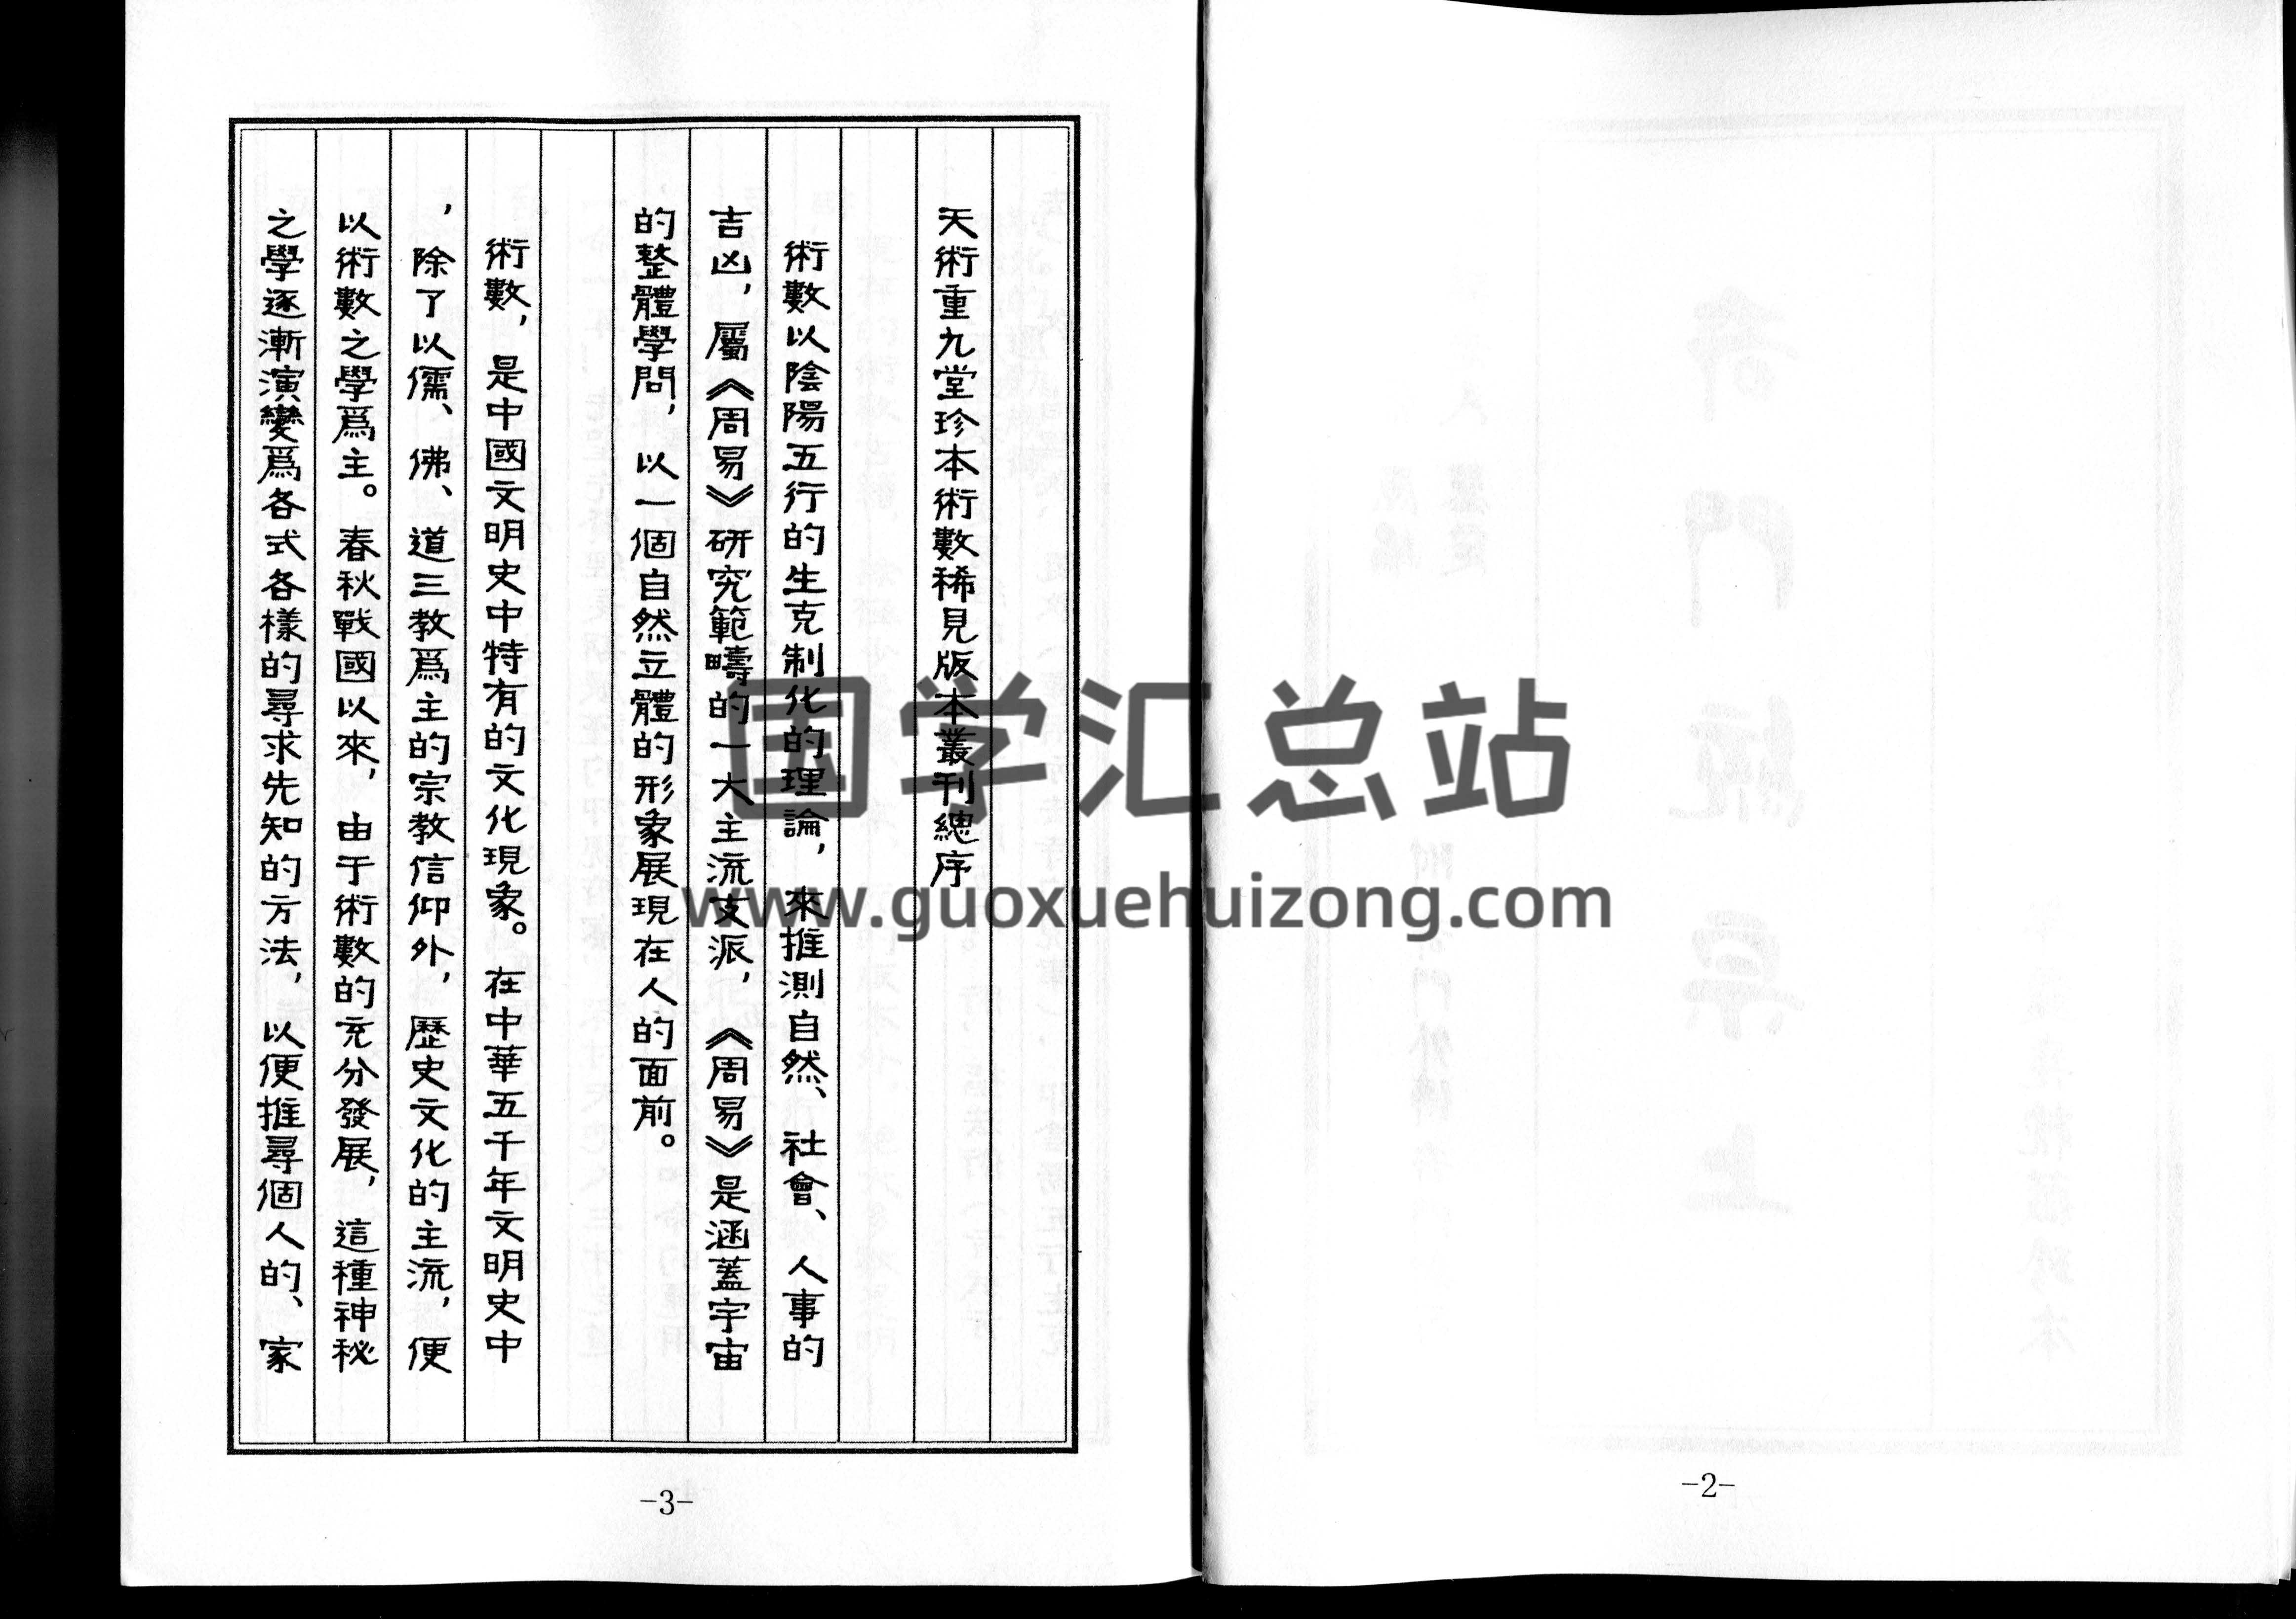 天術重九堂珍本術數稀見版本叢刊總序
術數以陰陽五行的生克制化的理論，來推測自然、社會、人事的
吉凶，屬《周易》研究範疇的一大主流支派，《周易》是涵蓋宇宙
的整體學問，以一個自然立體的形象展現在人的面前。
術數，是中國文明史中特有的文化現象。在中華五千年文明史中
，除了以儒、佛、道三教爲主的宗教信仰外，歷史文化的主流，便
以術數之學爲主。春秋戰國以來，由于術數的充分發展，這種神秘
之學逐漸演變爲各式各樣的尋求先知的方法，以便推尋個人的、家
-3-
-2-
国学汇总站
www.guoxuehuizong.com